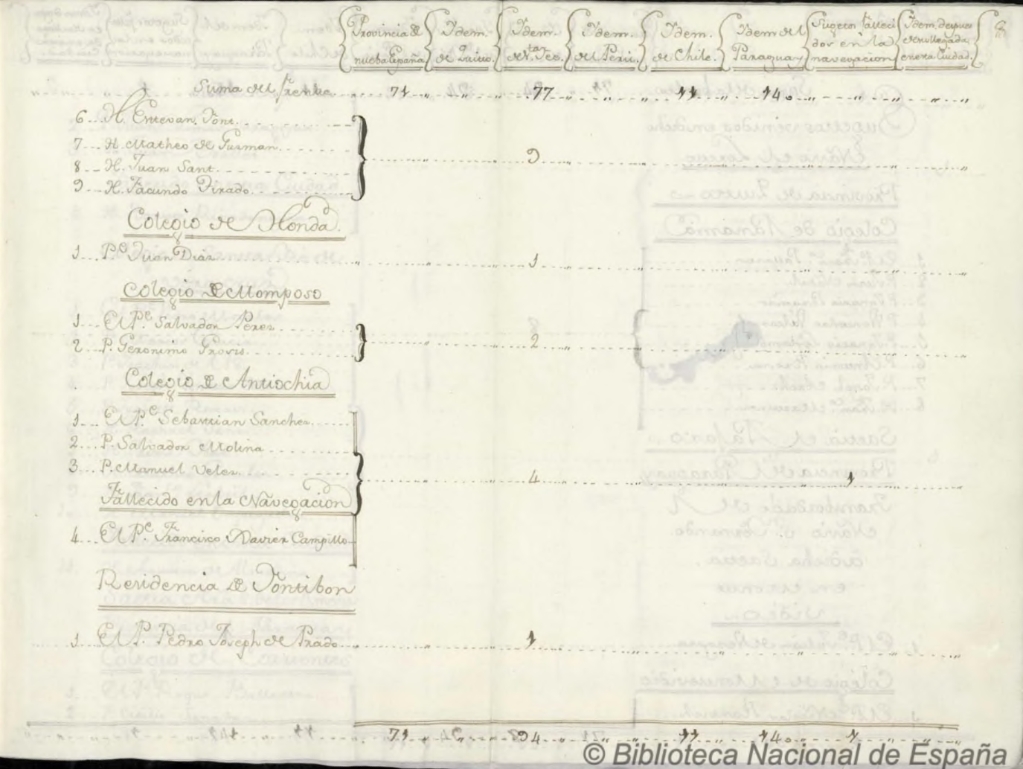 Provincia de nueba España Idem. de Quito. Idem. de N. Rno. Idem. del Perù. Idem. de Chile. Idem del Paraguay Sugetos falleci dos en la navegacion Idem, despues de su llegada en esta Ciudad.
Suma del frente 71 77 11 14
6 H. Estevan Font
7 H. Matheo de Gusman
8 H. Juan Sant
9 H. Facundo Pirado
9
Colegio de Honda
1 Pe. Juan Diaz 1
Colegio de Momposo
1 El Pe. Salvador Perez
2 P. Geronimo Grosis
2
Colegio de Antiochia
1 El Pe. Sebastian Sanchez
2 P. Salvador Molina
3 P. Manuel Velez 4 1
Fallecido en la Navegacion
4 El Pe. Francisco Xavier Campillo
Residencia de Fontibon
1 El P. Pedro Joseph de Prado 1
71 94 11 14 1
© Biblioteca Nacional de España